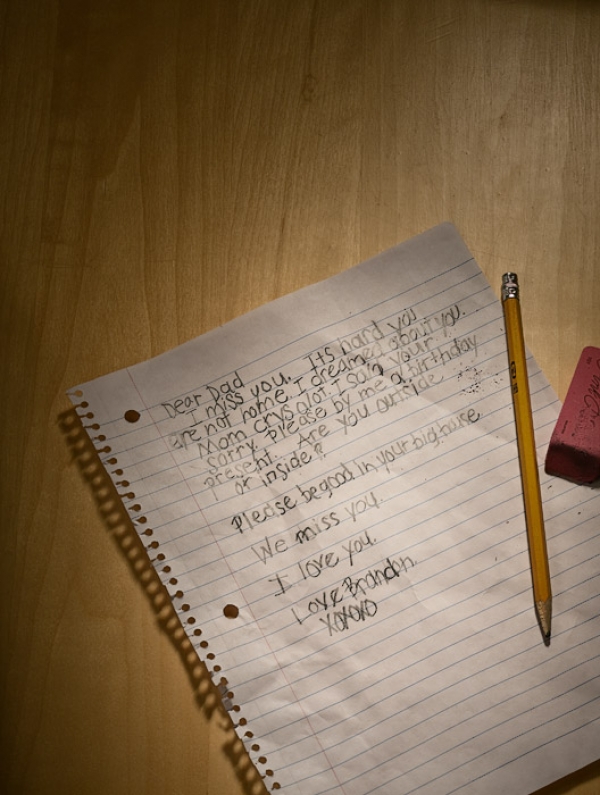 Dear Dad
I miss you. Its hard you
are not home. I dreamed about you.
Mom crys alot. I said your
sorry. Please by me a birthday
present. Are you outside
or inside?
Please be good in your big house
We miss you.
I love you.
Love Brandon.
XOXOXO